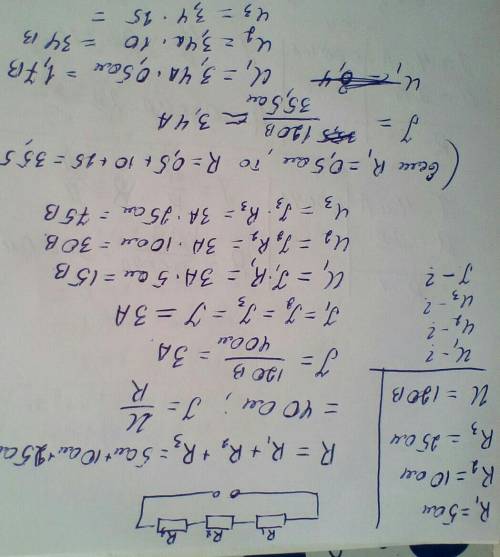 R₁ = 5 Ом
R₂ = 10 Ом
R₃ = 25 Ом
U = 120 В
U₁ - ?
U₂ - ?
U₃ - ?
J - ?
R₁ R₂ R₃
R = R₁ + R₂ + R₃ = 5 Ом + 10 Ом + 25 Ом
= 40 Ом ; J = U/R
J = 120 В / 40 Ом = 3 А
J₁ = J₂ = J₃ = J = 3 А
U₁ = J₁R₁ = 3А · 5 Ом = 15 В
U₂ = J₂R₂ = 3А · 10 Ом = 30 В
U₃ = J₃ · R₃ = 3А · 25 Ом = 75 В
(если R₁ = 0,5 Ом, то R = 0,5 + 10 + 25 = 35,5
J = 120 В / 35,5 Ом ≈ 3,4 А
U₁ = 3,4А · 0,5 Ом = 1,7 В
U₂ = 3,4А · 10 = 34 В
U₃ = 3,4 · 25 =